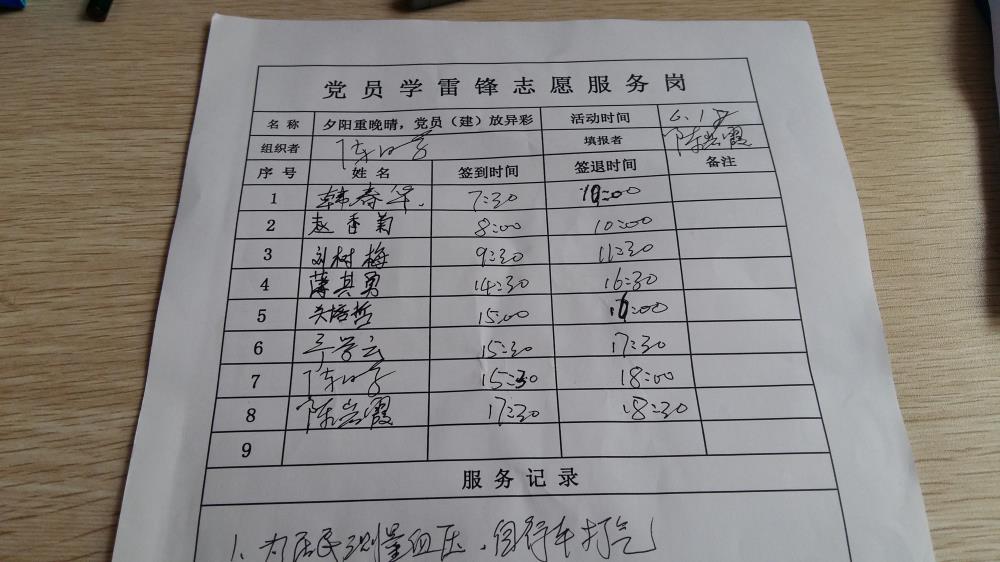 党员学雷锋志愿服务岗
名称 夕阳重晚晴,党员(建)放异彩 活动时间 6.18
组织者 陈 填报者 陈岩霞
序号 姓名 签到时间 签退时间 备注
1 韩春华. 7:30 10:00
2 赵香菊 8:00 10:00
3 刘树梅 9:30 11:30
4 薄其勇 14:30 16:30
5 关培哲 15:00 16:00
6 学云 15:30 17:30
7 陈 15:30 18:00
8 陈岩霞 17:30 18:30
9
服务记录
1、为居民测量血压、自行车打气